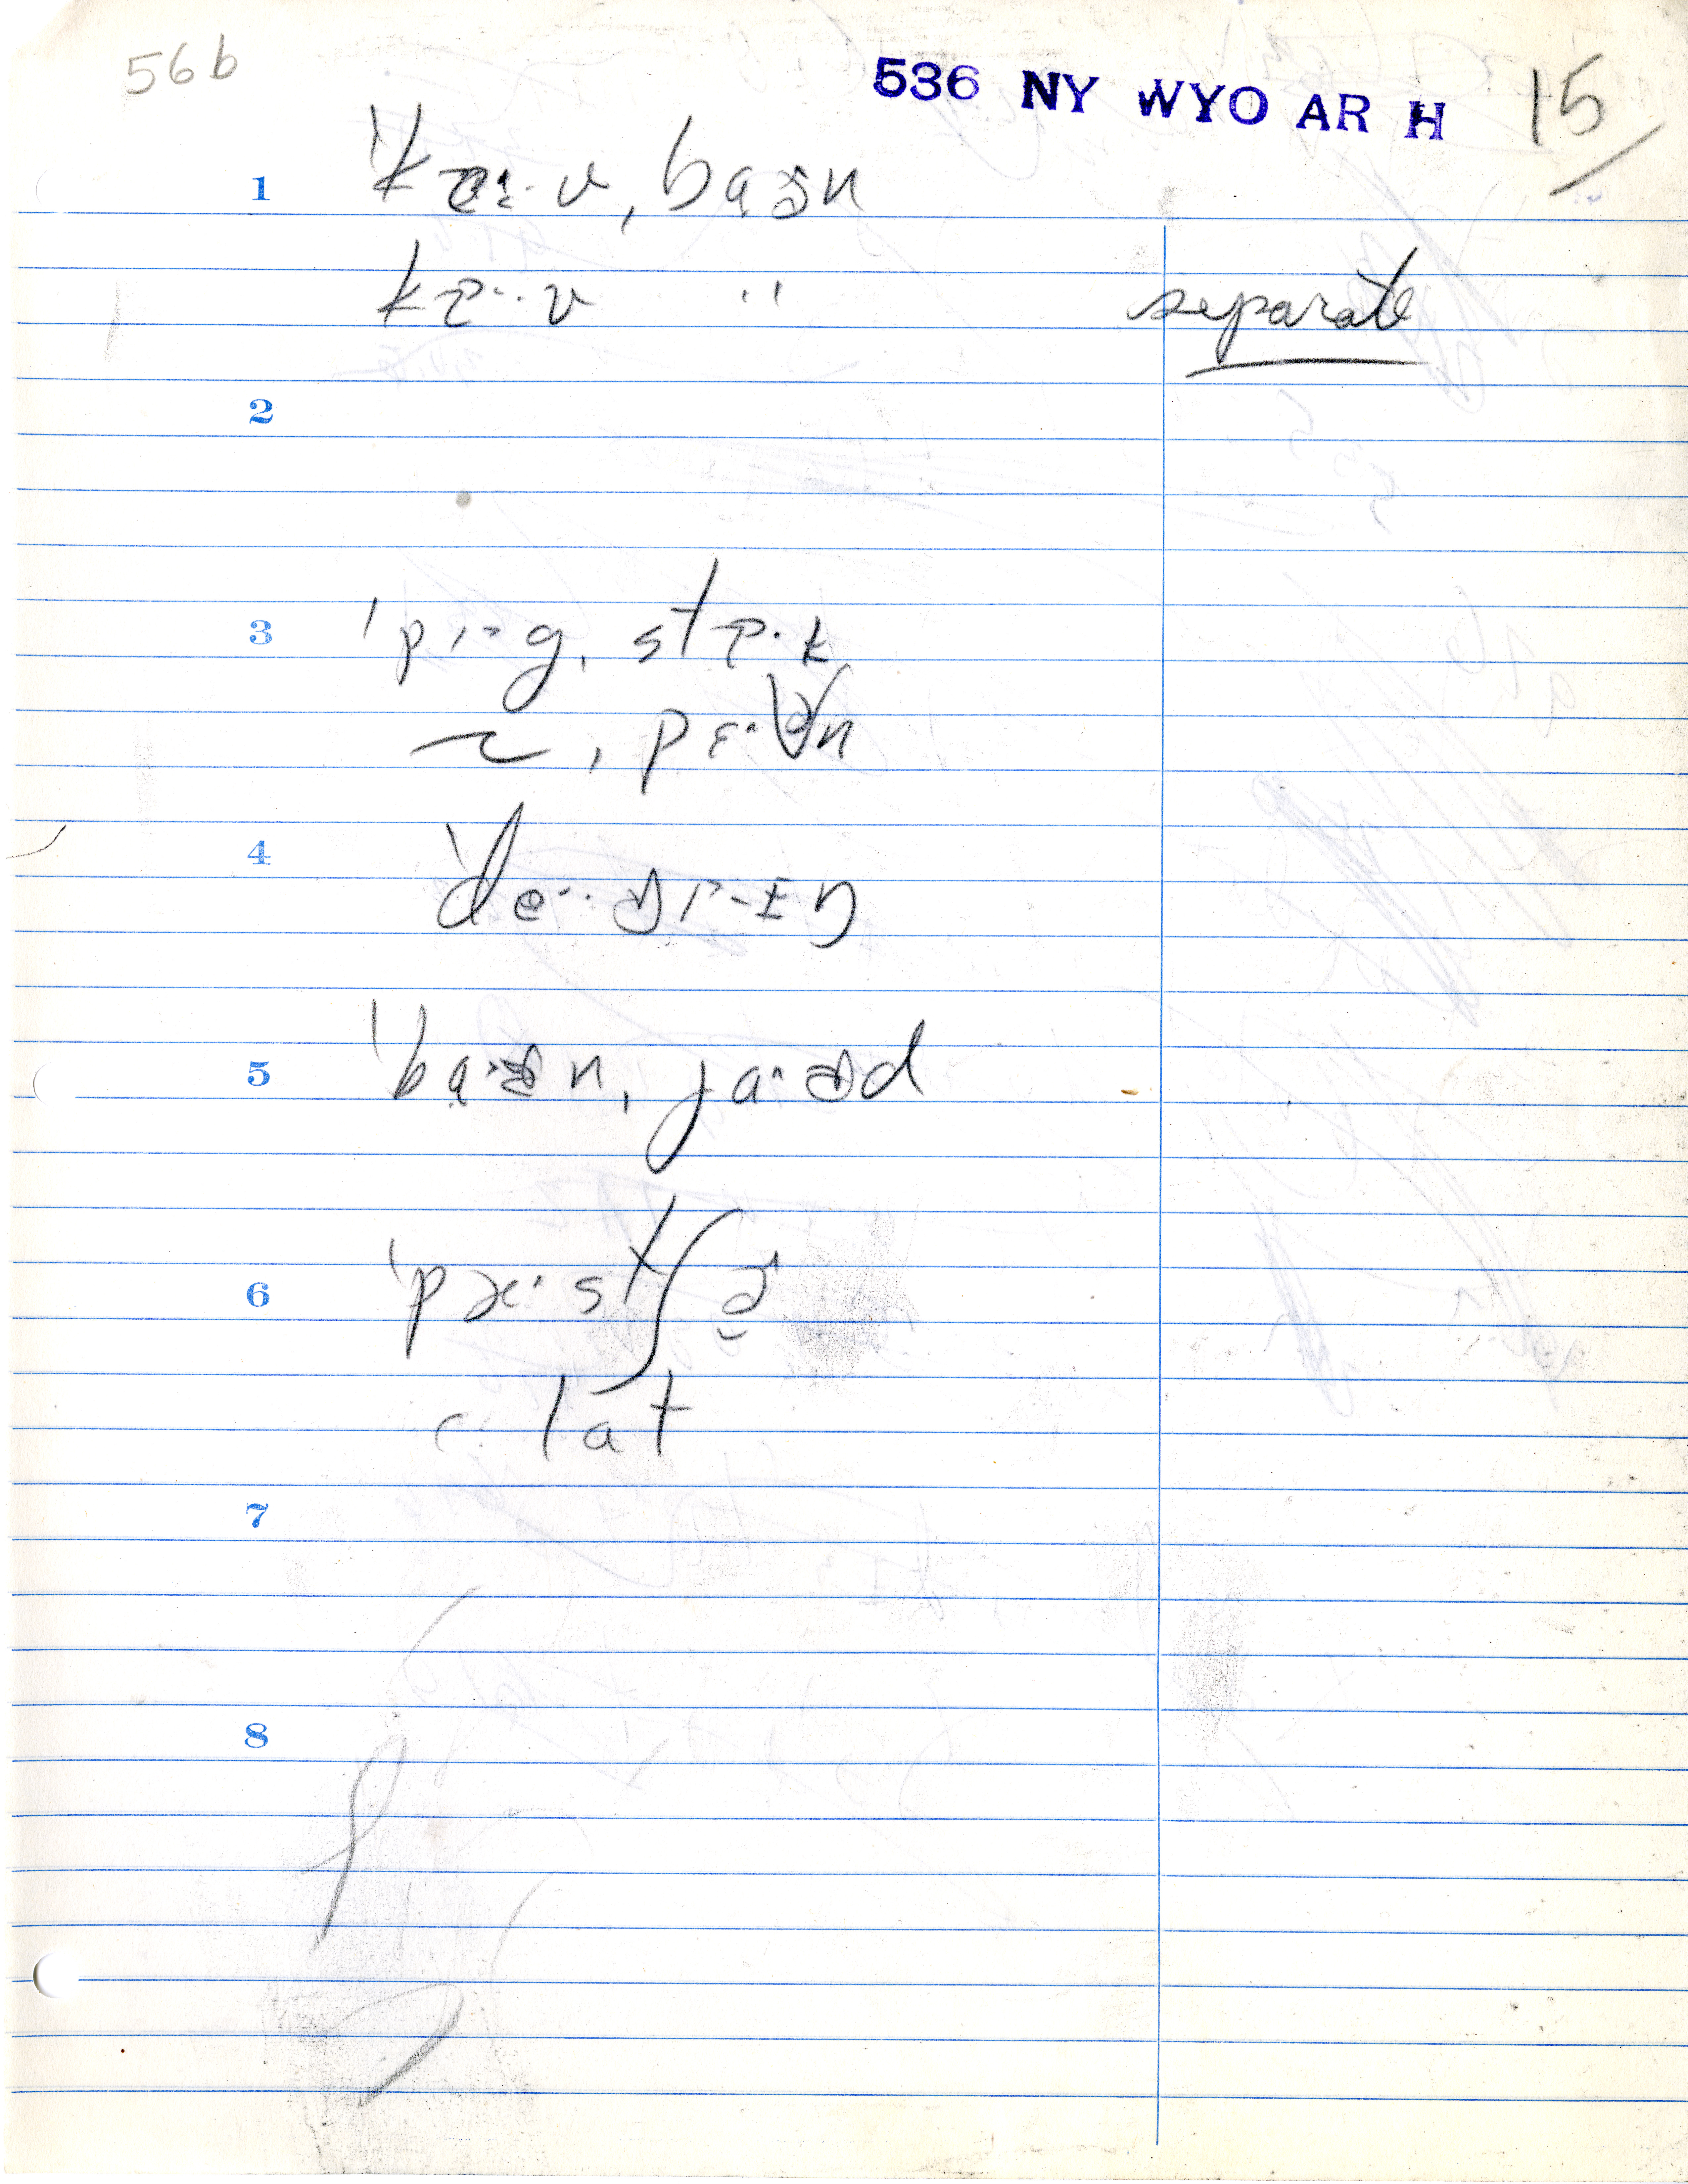 56b
536 NY WYO AR H 15/
1 ˈkæ·v, baən
kɐ··v " separate
2
3 ˈpɪ-g, stɐ·k
~, pɛ·ən
4 ˈde··ɚɪ-ɪŋ
5 ˈba·ən, ja·ɚd
6 ˈpæ·stʃɚ
c: lat
7
8